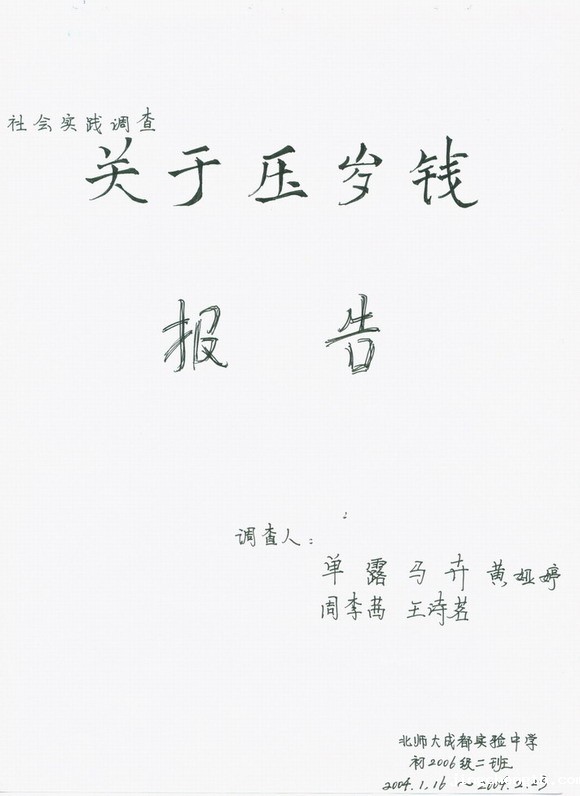 社会实践调查
关于压岁钱
报 告
调查人：
单 露 马 卉 黄娅婷
周李茜 王诗茗
北师大成都实验中学
初2006级二班
2004.1.16 ～2004.2.23